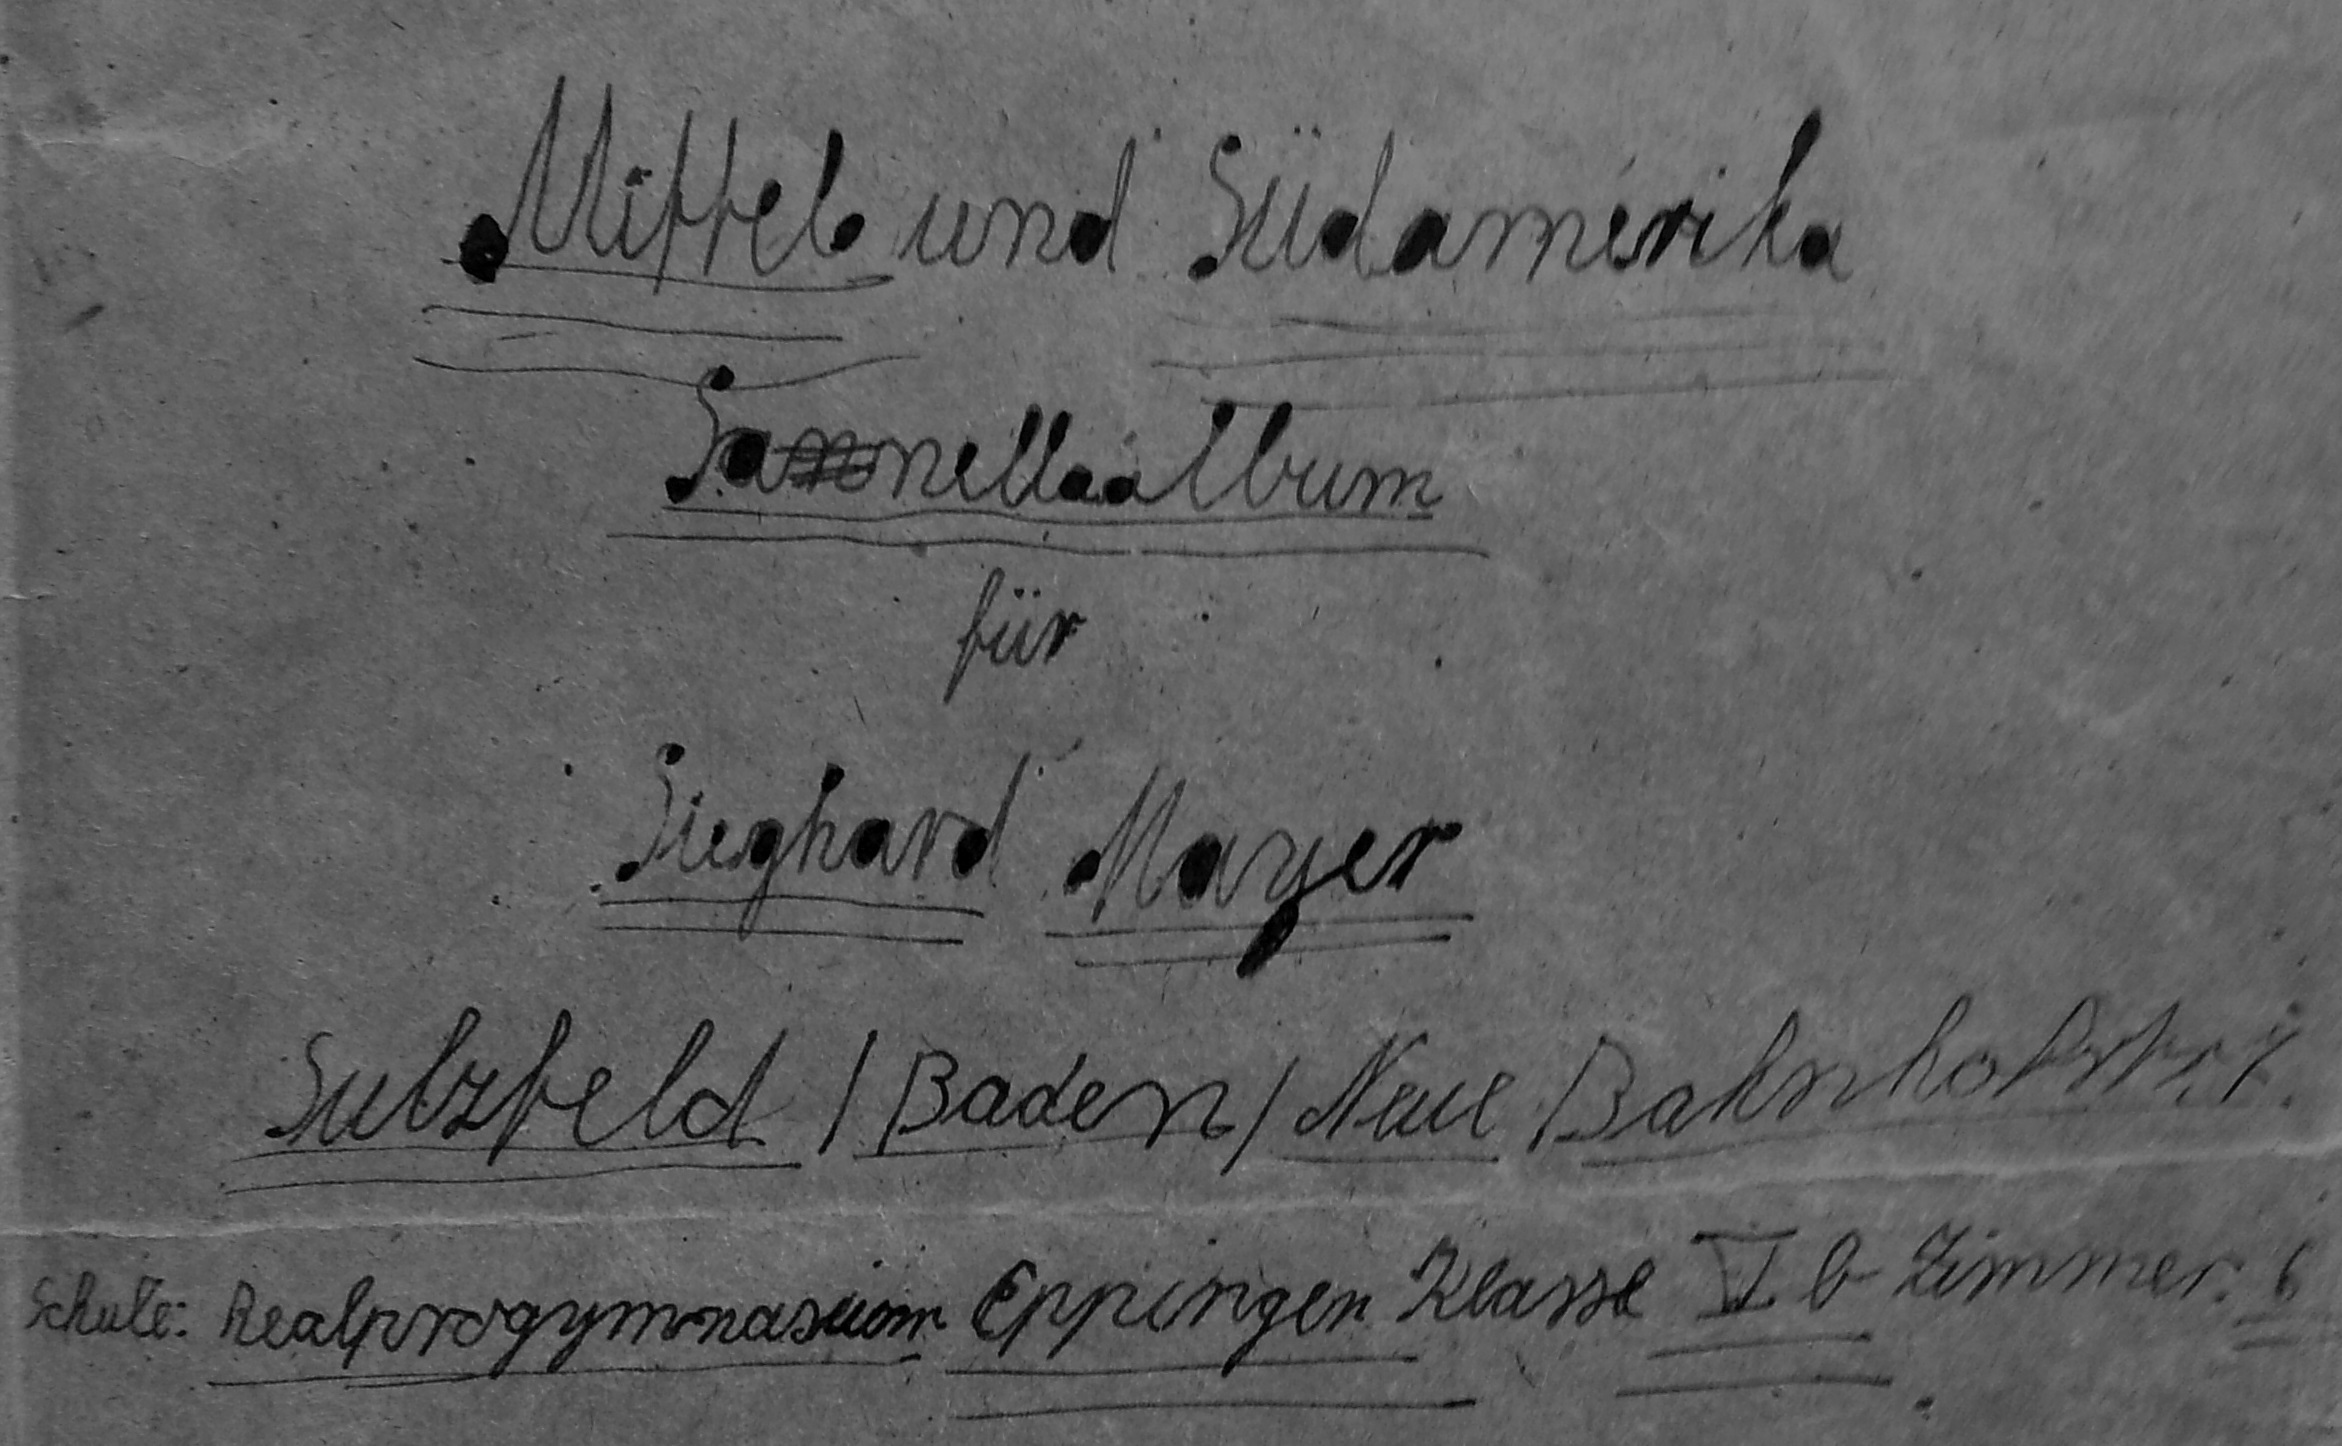 Mittel- und Südamerika
Sanellaalbum
für
Sieghard Mayer
Sulzfeld / Baden / Neue Bahnhofstr.
Schule: Realprogymnasium Eppingen Klasse VI b Zimmer. 6